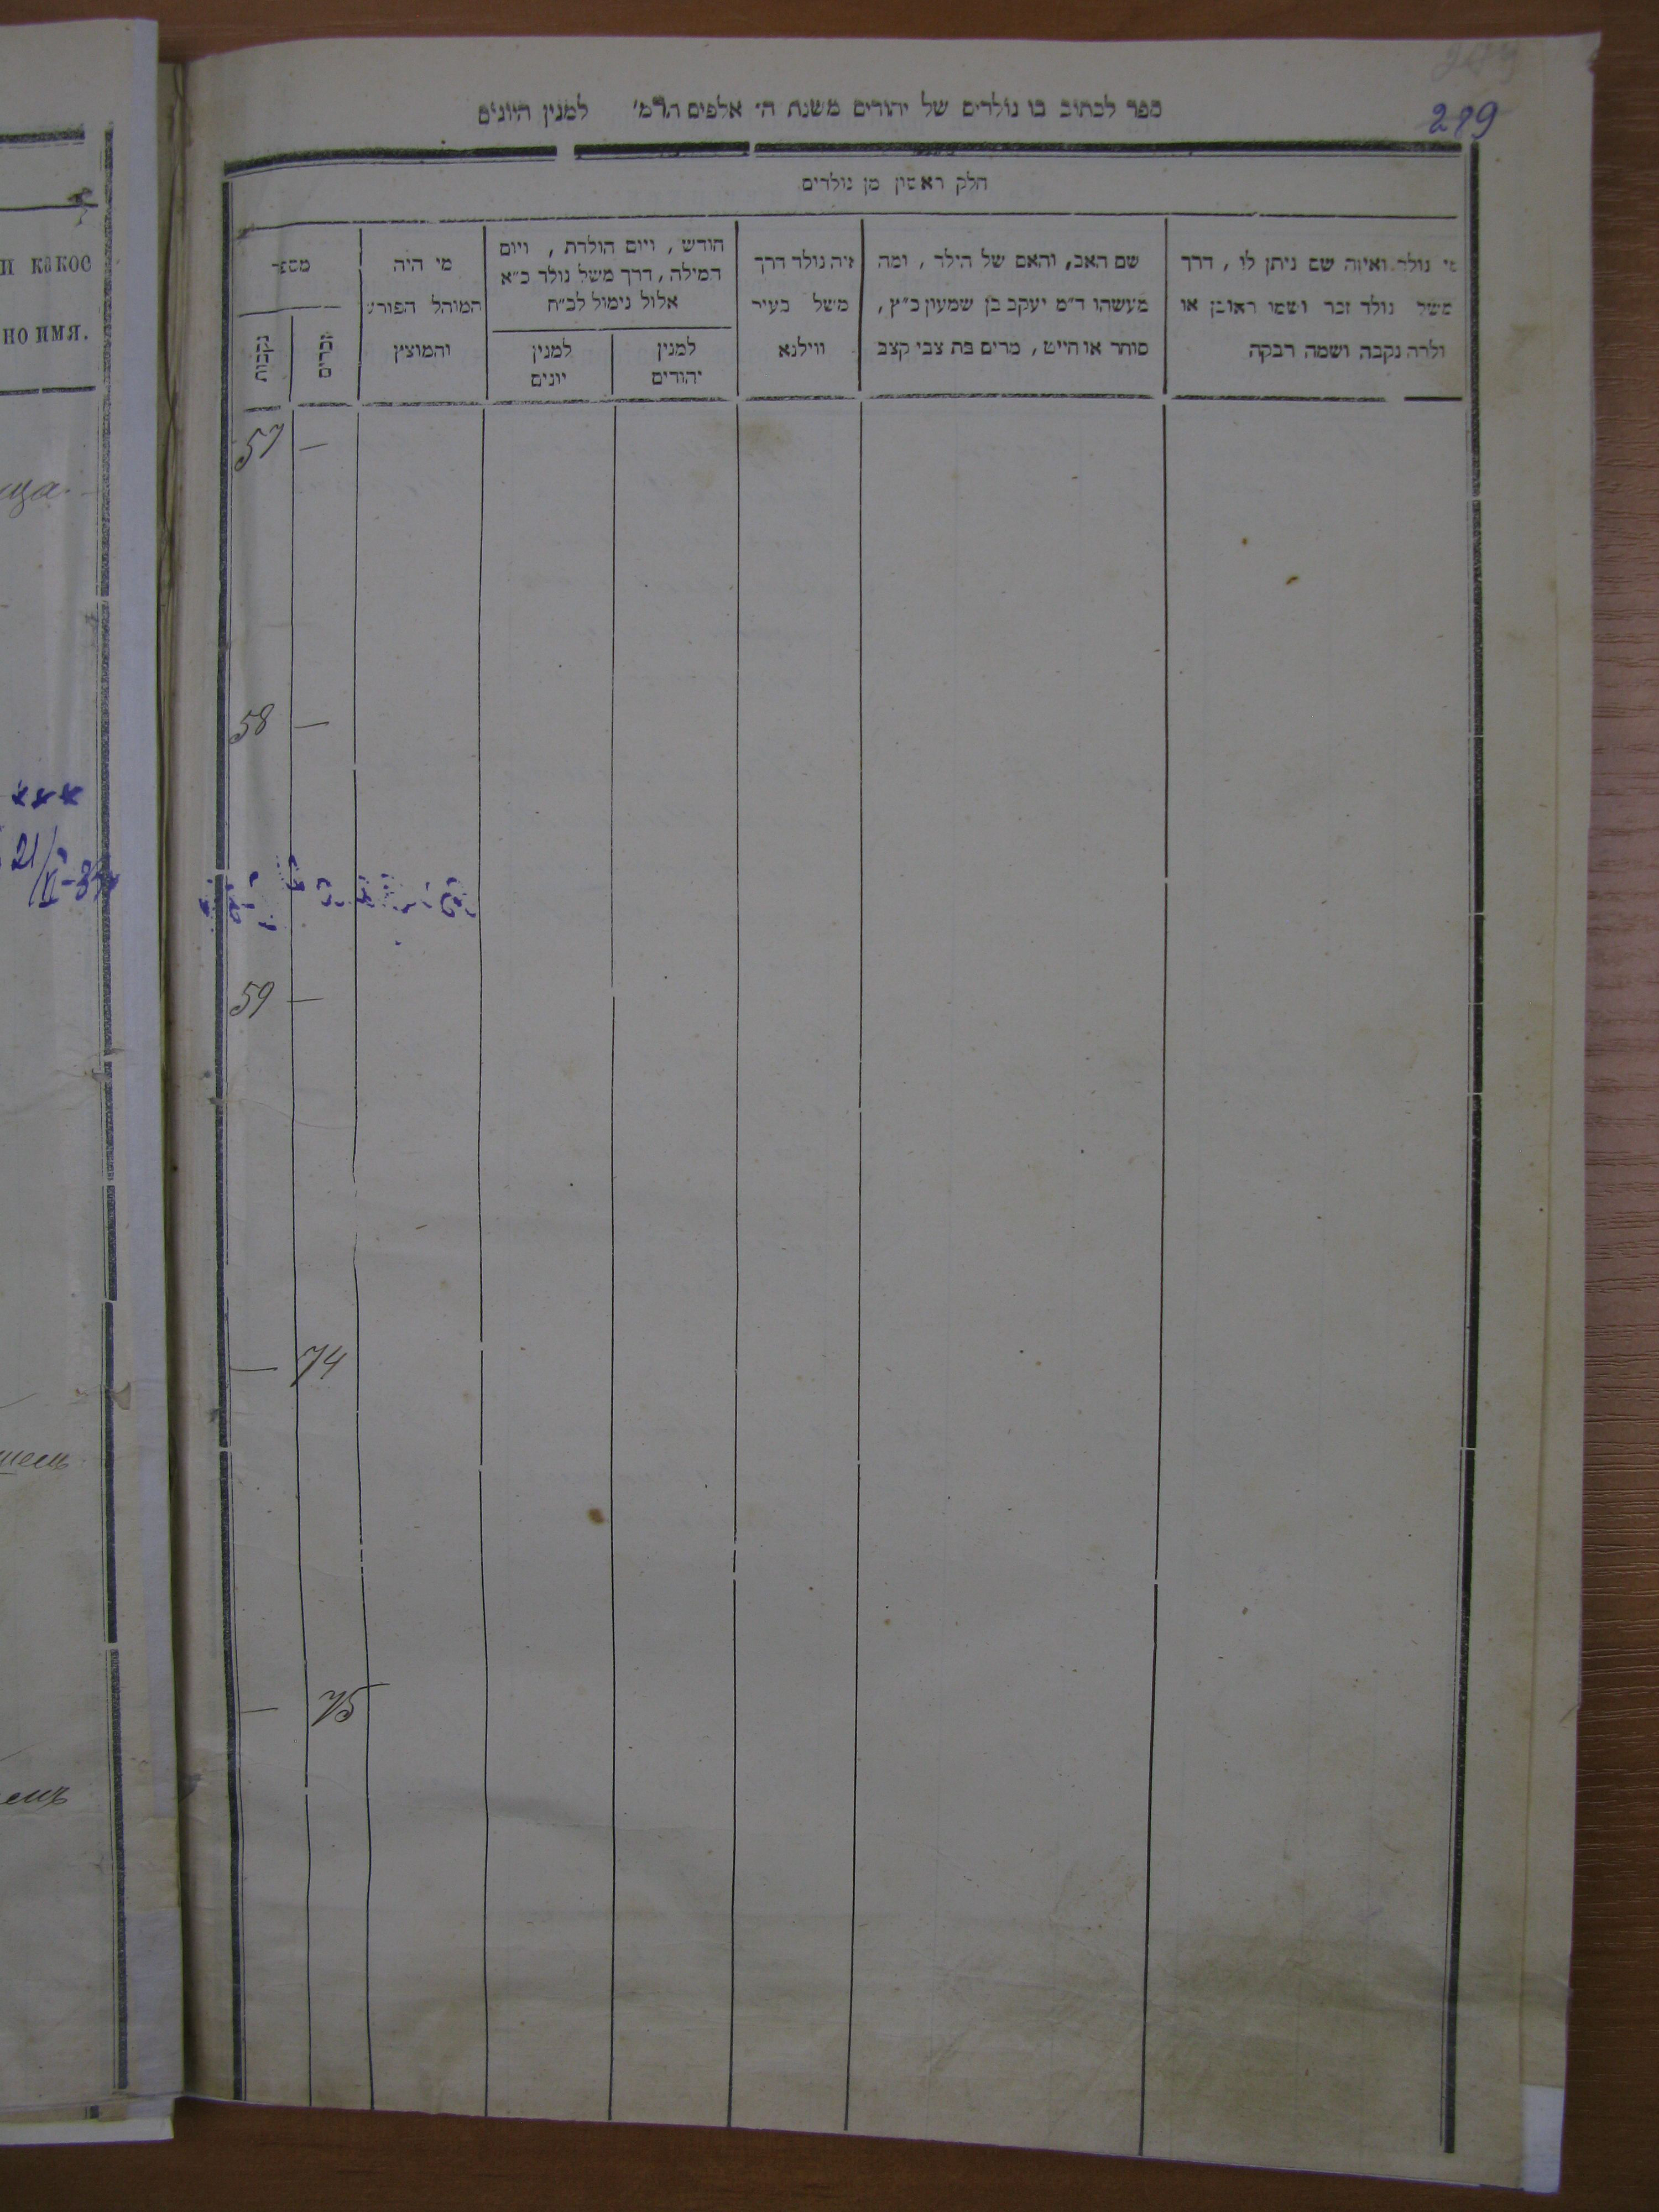 289
ספר לכתוב בו נולדים של יהודים משנת ה׳ אלפים תרמ׳ למנין היונים
חלק ראשון מן נולדים
מי נולד ואיזה שם ניתן לו, דרך
משל נולד זכר ושמו ראובן או
ולדה נקבה ושמה רבקה
שם האב, והאם של הילד, ומה
מעשהו ד״מ יעקב בן שמעון כ״ץ,
סוחר או חייט, מרים בת צבי קצב
איה נולד דרך
משל בעיר
ווילנא
חודש, ויום הולדת, ויום
המילה, דרך משל נולד כ״א
אלול נימול לב״ח
למנין
יהודים
למנין
יונים
מי היה
המוהל הפורע
והמוצץ
מספר
זכרים
נקבות
57 —
58 —
59 —
— 74
— 75
и какое
но имя.
ица.
***
21/VI-35
шель